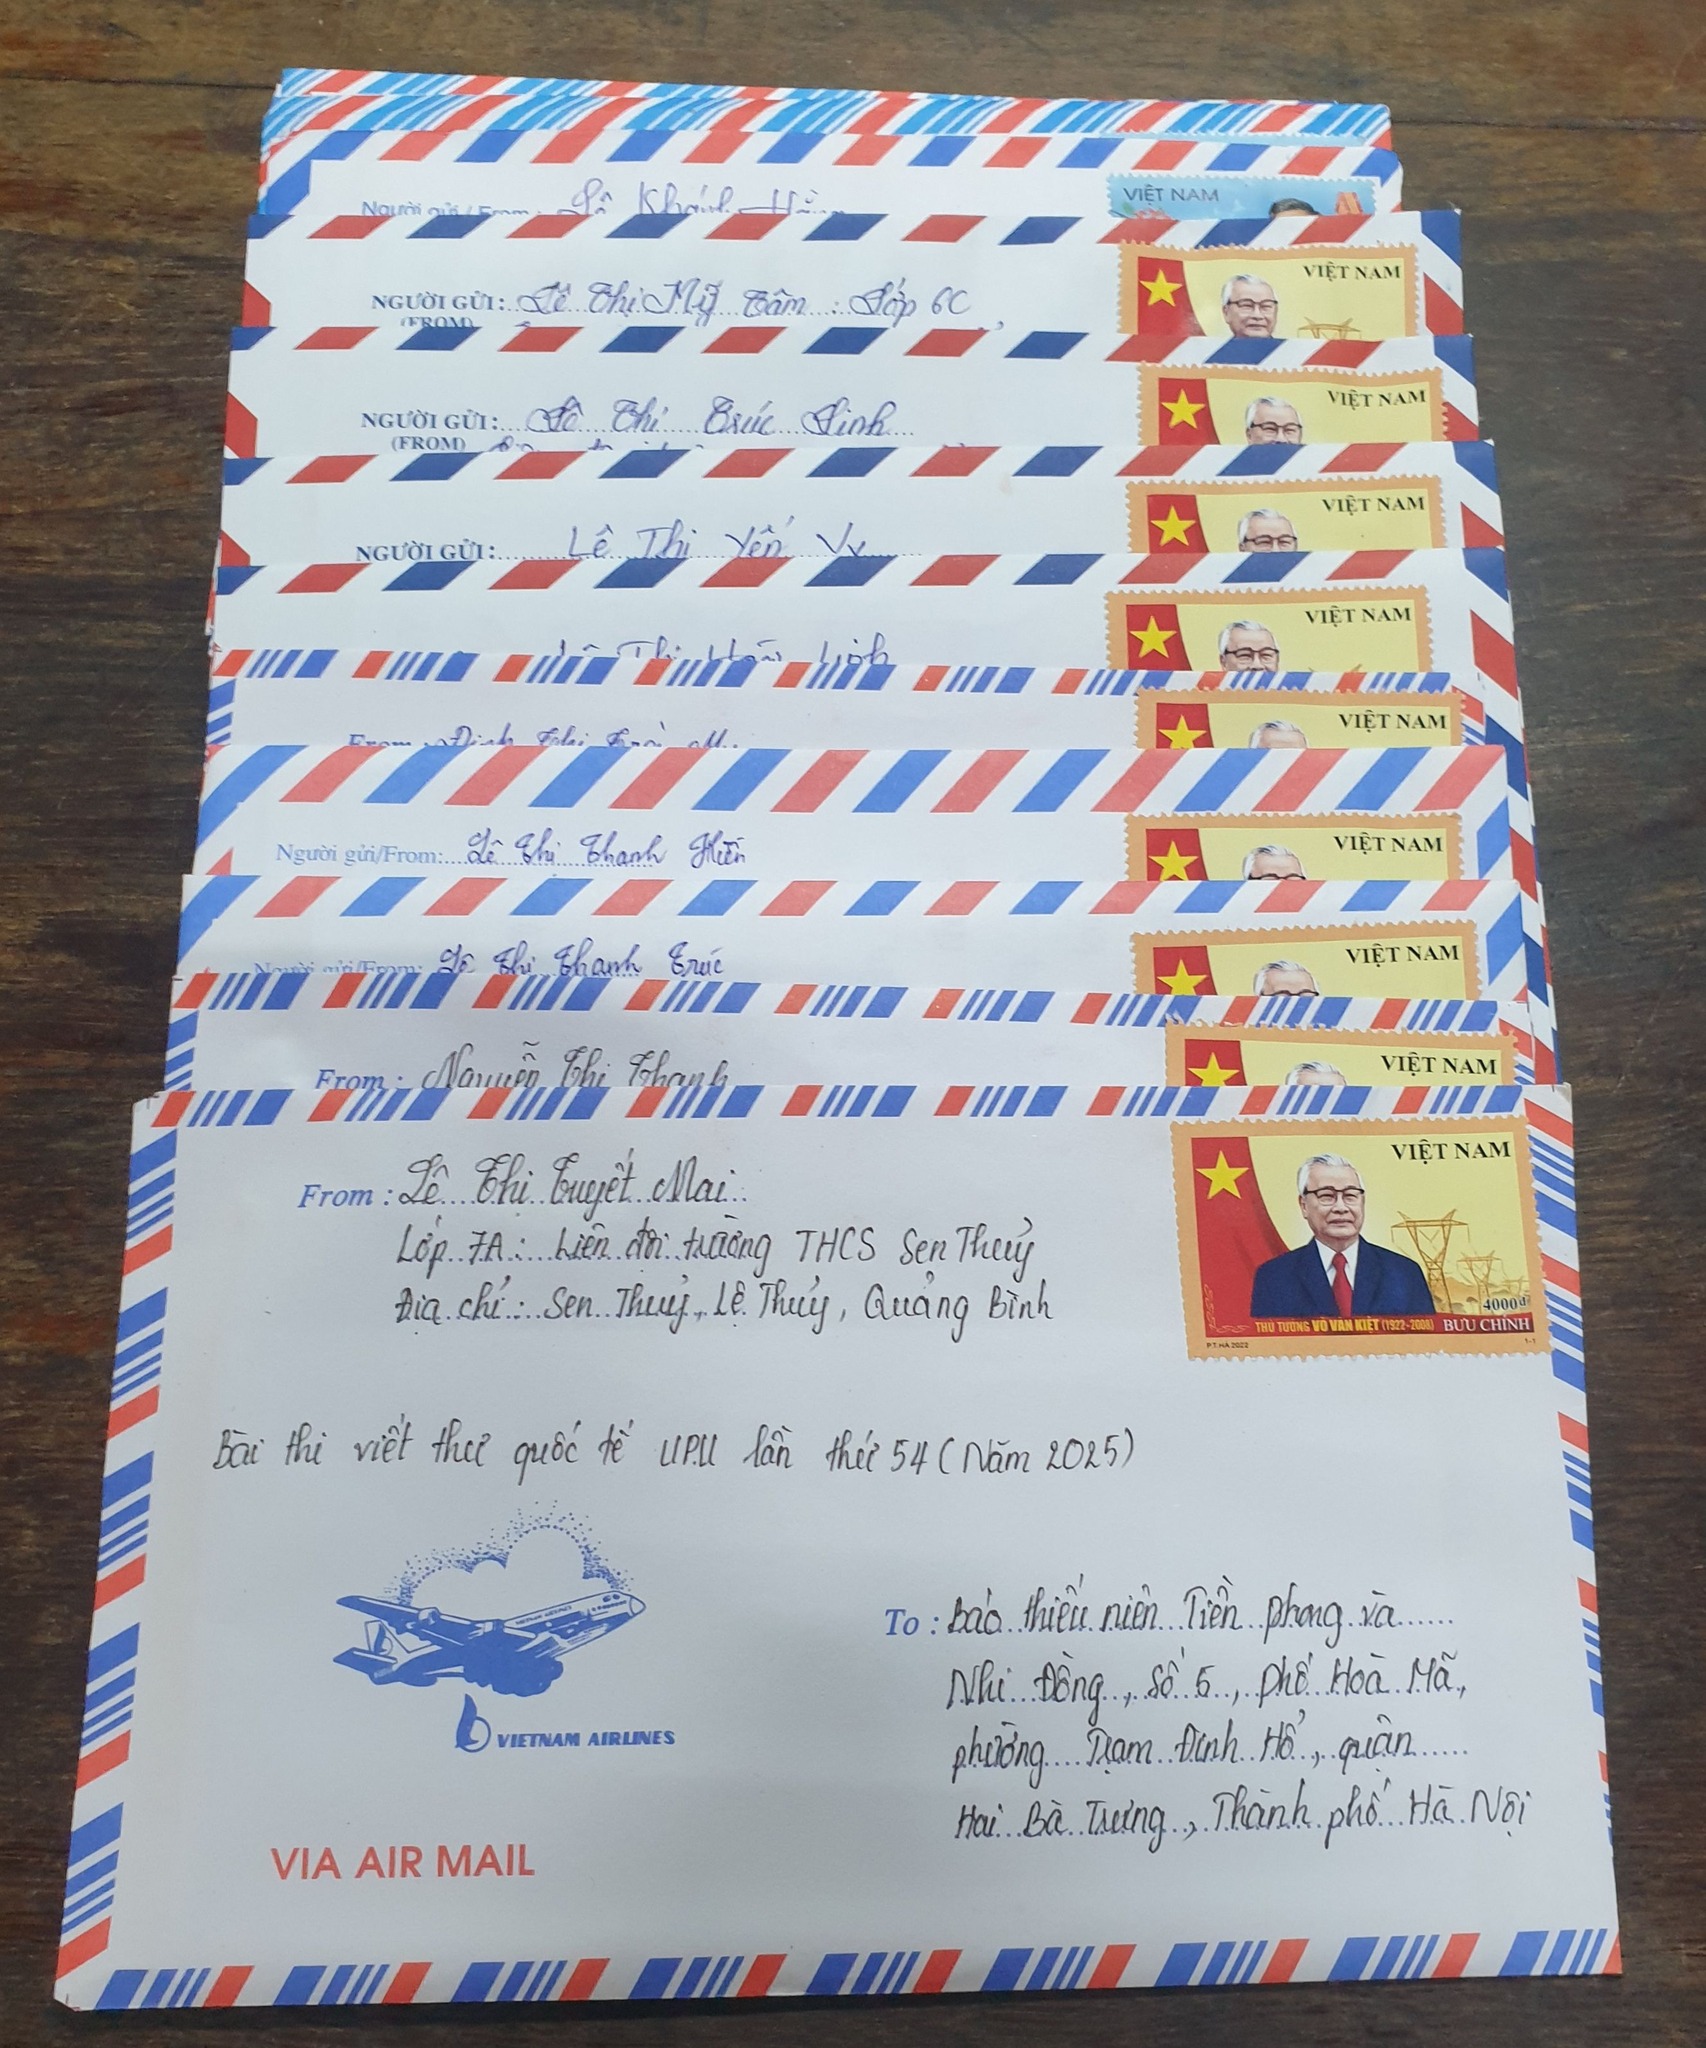 Người gửi / From : Lê Khánh Hằng
VIỆT NAM
NGƯỜI GỬI: Lê Thị Mỹ Tâm : Lớp 6C
(FROM)
VIỆT NAM
NGƯỜI GỬI: Lê Thị Trúc Linh
(FROM)
VIỆT NAM
NGƯỜI GỬI: Lê Thị Yến Vy
VIỆT NAM
Lê Thị Hoài Linh
VIỆT NAM
From : Đinh Thị Trà My
VIỆT NAM
Người gửi/From: Lê Thị Thanh Hiền
VIỆT NAM
Người gửi/From: Lê Thị Thanh Trúc
VIỆT NAM
From : Nguyễn Thị Thanh
VIỆT NAM
From : Lê Thị Tuyết Mai
Lớp 7A : Liên đội trường THCS Sen Thuỷ
Địa chỉ : Sen Thuỷ, Lệ Thủy, Quảng Bình
VIỆT NAM
4000đ
THỦ TƯỚNG VÕ VĂN KIỆT (1922-2008) BƯU CHÍNH
P.T.HÀ 2022 1-1
Bài thi viết thư quốc tế UPU lần thứ 54 (Năm 2025)
VIETNAM AIRLINES
To : Báo thiếu niên Tiền phong và
Nhi Đồng, Số 5, phố Hoà Mã,
phường Phạm Đình Hổ, quận
Hai Bà Trưng, Thành phố Hà Nội
VIA AIR MAIL